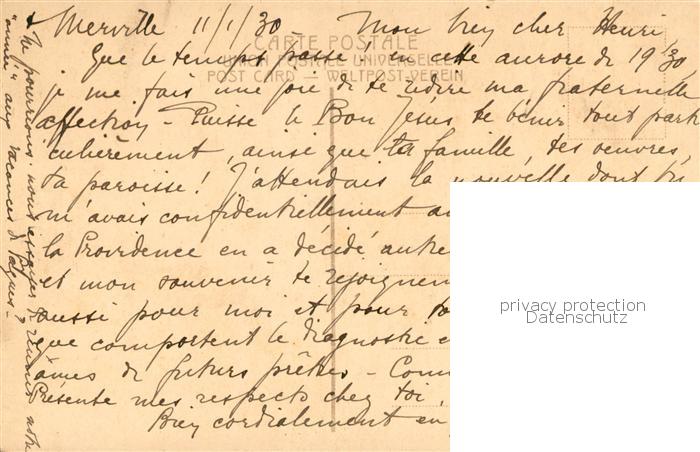 Merville 11/1/30 Mon bien cher Henri,
CARTE POSTALE
UNION POSTALE UNIVERSELLE
POST CARD — WELTPOST-VEREIN
Que le temps passe ! en cette aurore de 1930
je me fais une joie de te redire ma fraternelle
affection - Puisse le Bon Jésus te bénir tout parti
culièrement, ainsi que ta famille, tes oeuvres,
ta paroisse ! J'attendais la nouvelle dont tu
m'avais confidentiellement
la Providence en a décidé autre
et mon souvenir te rejoignen
aussi pour moi et pour
que comportent le diagnostic
âmes de futurs prêtres -
Présente mes respects chez toi,
Bien cordialement en
Ne pourrions-nous essayer de réunir notre
"année" aux vacances de Pâques ? -
privacy protection
Datenschutz